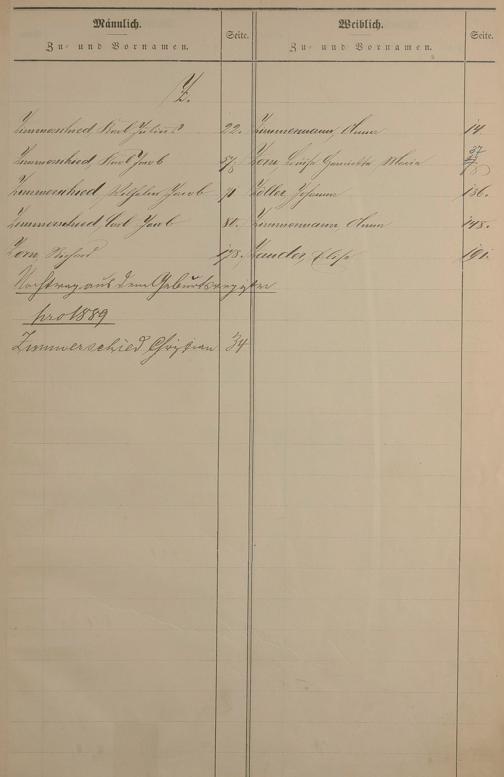 Männlich.
Zu- und Vornamen.
Seite.
Weiblich.
Zu- und Vornamen.
Seite.
Z.
Zimmerschied Karl Julius 22.
Zimmerschied, Karl Jacob
Zimmerschied, Wilhelm Jacob 71
Zimmerschied, Carl Jacob 81.
Zorn, Richard 178.
Nachtrag aus dem Geburtsregister
pro 1889
Zimmerschied, Christian 34
Zimmermann, Anna 14
Zorn, Louise Henriette Maria 37
Zöller, Johanna 136.
Zimmermann Anna 148.
Zander, Elise 191.